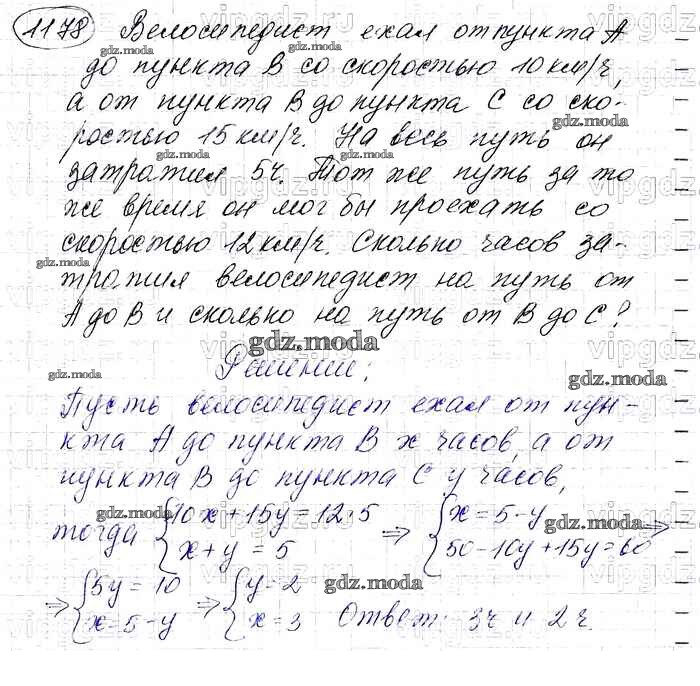 1178 Велосипедист ехал от пункта А
до пункта В со скоростью 10 км/ч,
а от пункта В до пункта С со ско-
ростью 15 км/ч. На весь путь он
затратил 5 ч. Тот же путь за то
же время он мог бы проехать со
скоростью 12 км/ч. Сколько часов за-
тратил велосипедист на путь от
А до В и сколько на путь от В до С?
Решение:
Пусть велосипедист ехал от пун-
кта А до пункта В x часов, а от
пункта В до пункта С y часов,
тогда {10x + 15y = 12·5 ⇒ {x = 5 - y ⇒
x + y = 5 50 - 10y + 15y = 60
⇒ {5y = 10 ⇒ {y = 2
x = 5 - y x = 3 Ответ: 3ч и 2ч.
gdz.moda
vipgdz.ru